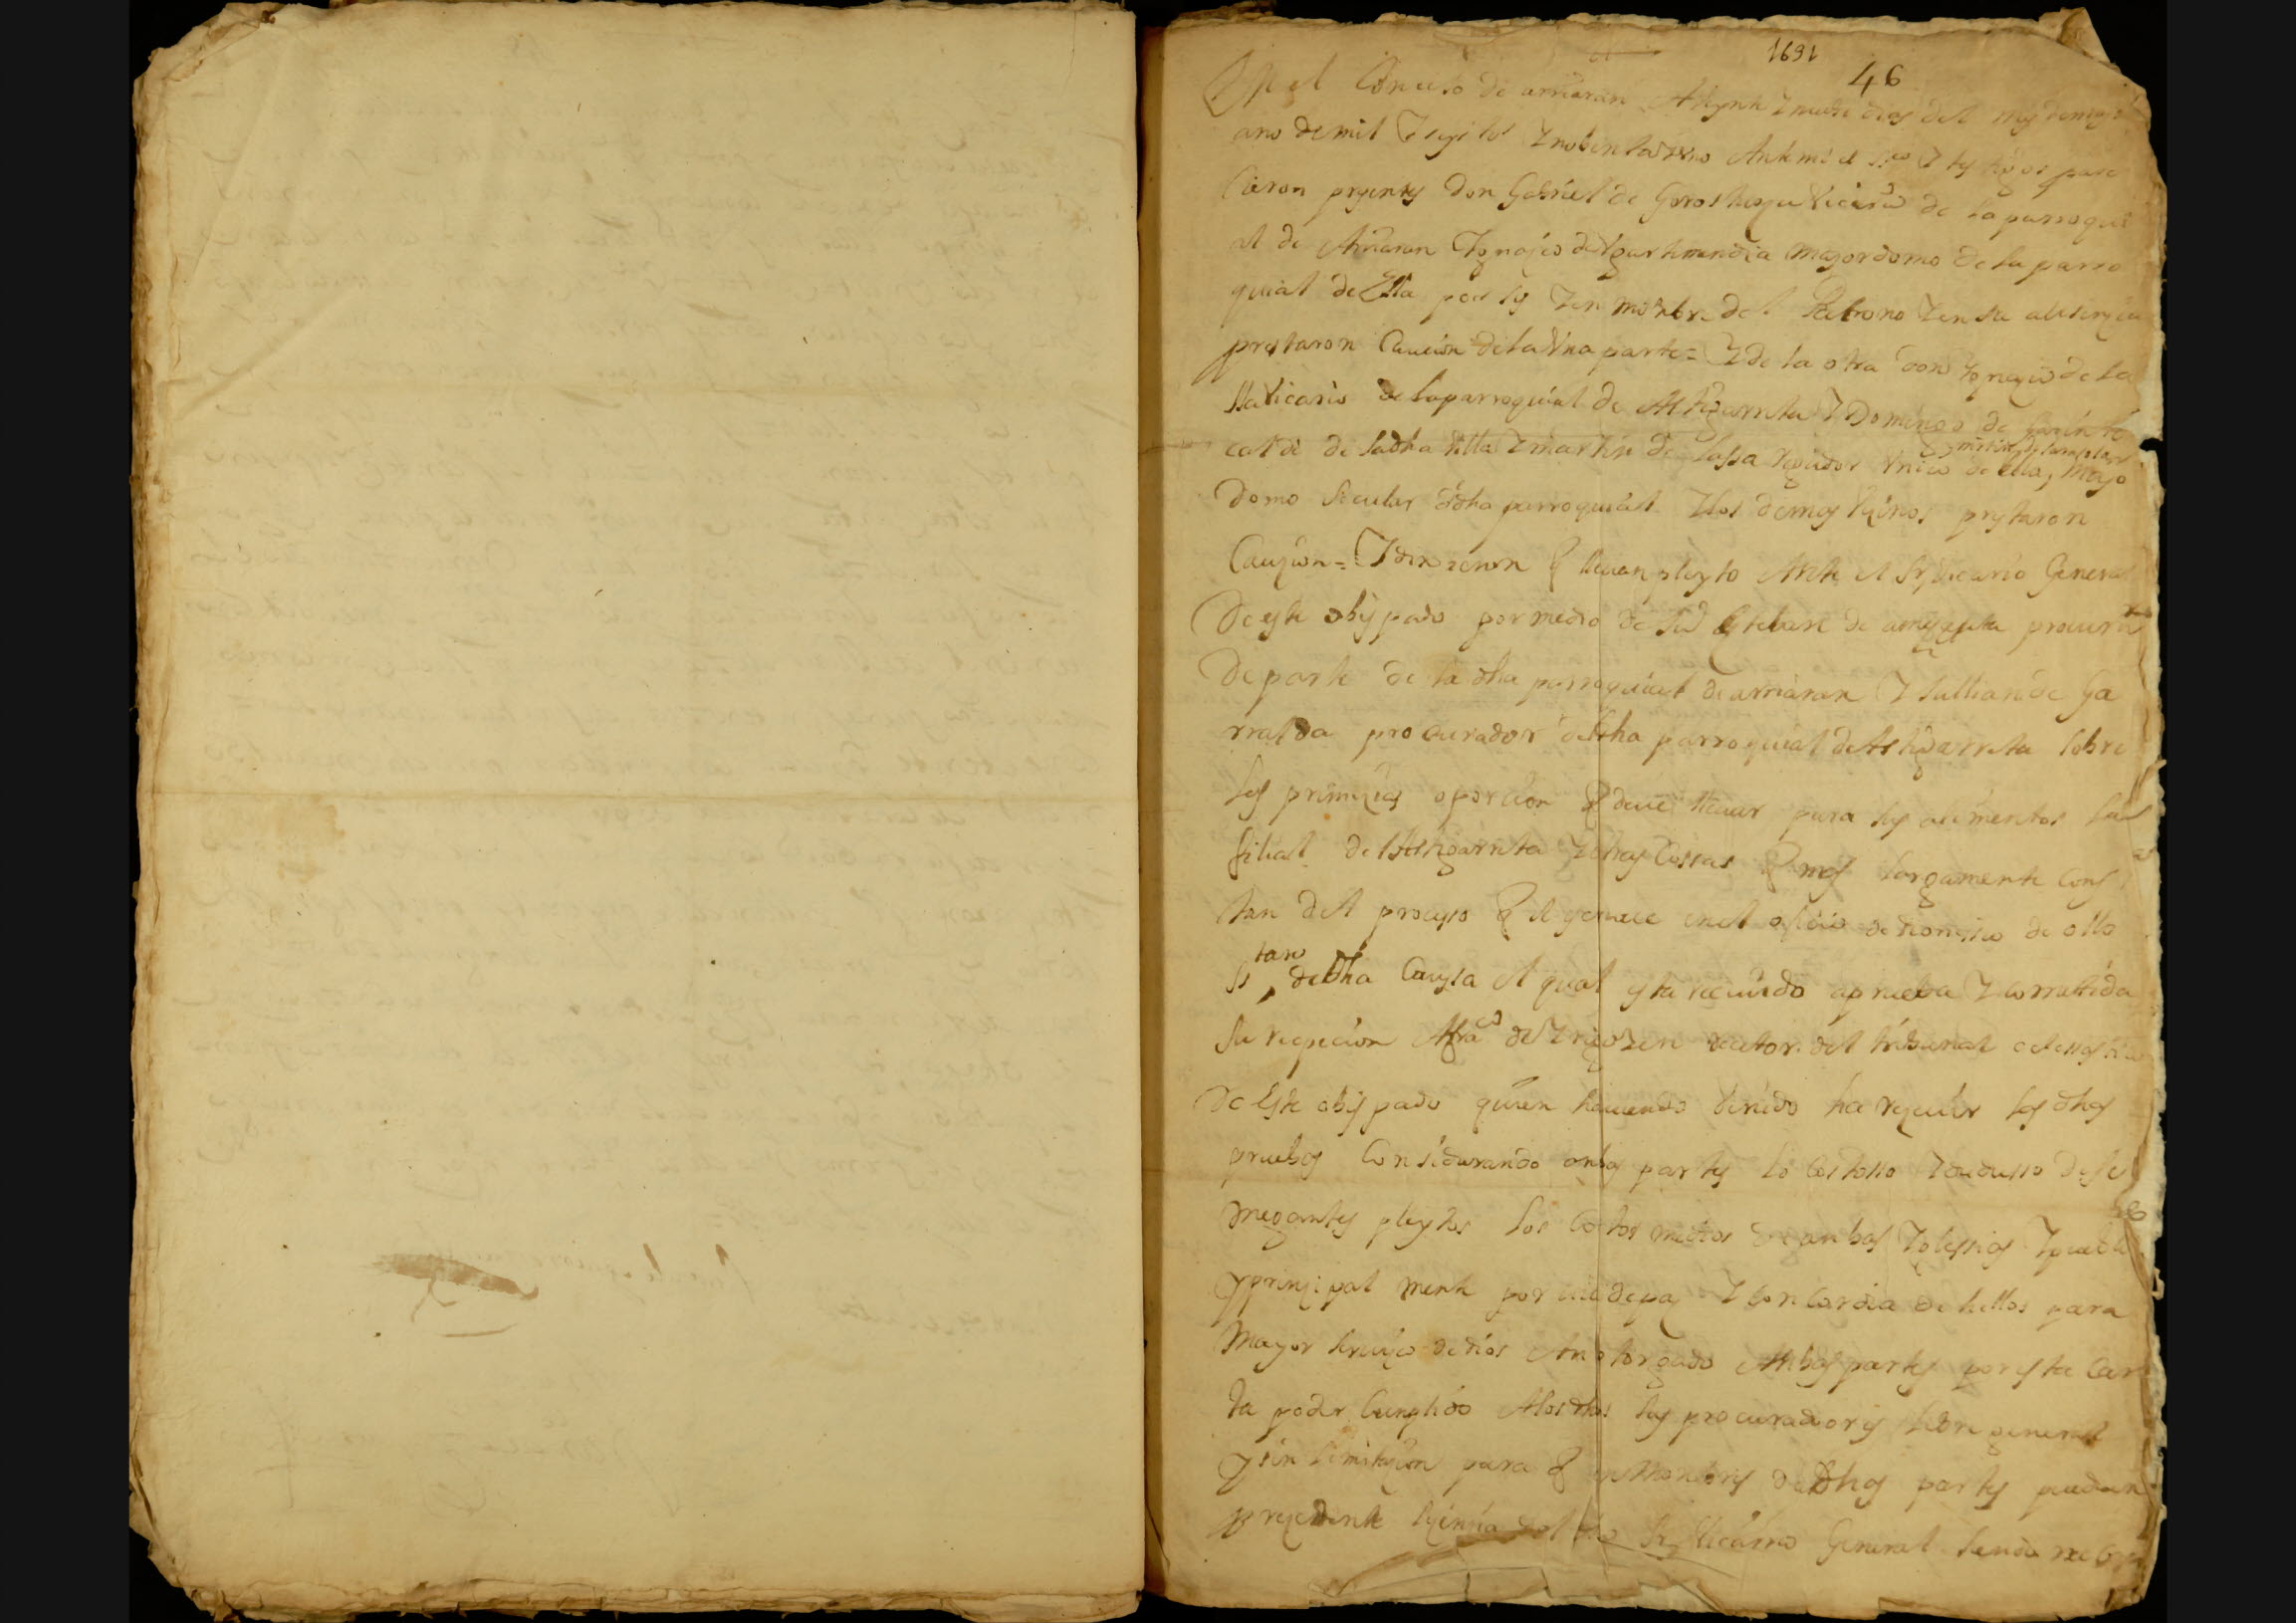 1691
46
En el Concejo de arriaran A Veynte y nuebe dias del mes de mayo
ano de mil y seys tos y nobenta y uno Ante mi el sno y testigos pare
cieron presentes Don Gabriel de Gorostegui Vicario de la parroqui
al de Arriaran Ygnaçio de Ygartimendia mayordomo de la parro
quial de Ella por si y en nombre del Patrono y en su ausençia
prestaron Caucion de la Vna parte = Y de la otra don Ygnaçio de La
ssa Vicario de la parroquial de Astigarreta y Domingo de
calde de la dha Villa y martin de Lassa regidor Vnico de ella, mayo
domo secular de dha parroquial y los demas Veçinos prestaron
Cauçion = Y dixieron q lleuan pleyto Ante el Sr Vicario General
de este obispado por medio de Ju Esteban de amezqueta procurador
de parte de la dha parroquial de arriaran y Jullian de Ga
rralda procurador de dha parroquial de Astigarreta sobre
las primiçias o porcion q deue lleuar para sus alimentos la
filial de Astigarreta y otras Cossas q mas largamente Cons
tan del proceso q de pende en el ofiçio de dionissio de ollo
sno tan de dha Caussa el qual esta reciuido aprueba y cometida
su recepcion A fraco de Yrigoien recetor del tribunal eclesiastico
de este obispado quien hauiendo Venido ha reçeuir las dhas
pruebas Considerando anbas partes lo costosso y dudusso de se
megantes pleytos los Cortos medios de anbas Yglessias y pueblos
y prinçipal mente por uia de paz y Concordia de hellos para
mayor seruiço de dios An otorgado Anbas partes por esta Car
ta poder Cunplido A los dhos sus procuradores libre general
y sin limitaçion para q en nonbres de dhas partes puedan
preçedente liçençia del dho Sr Vicario General